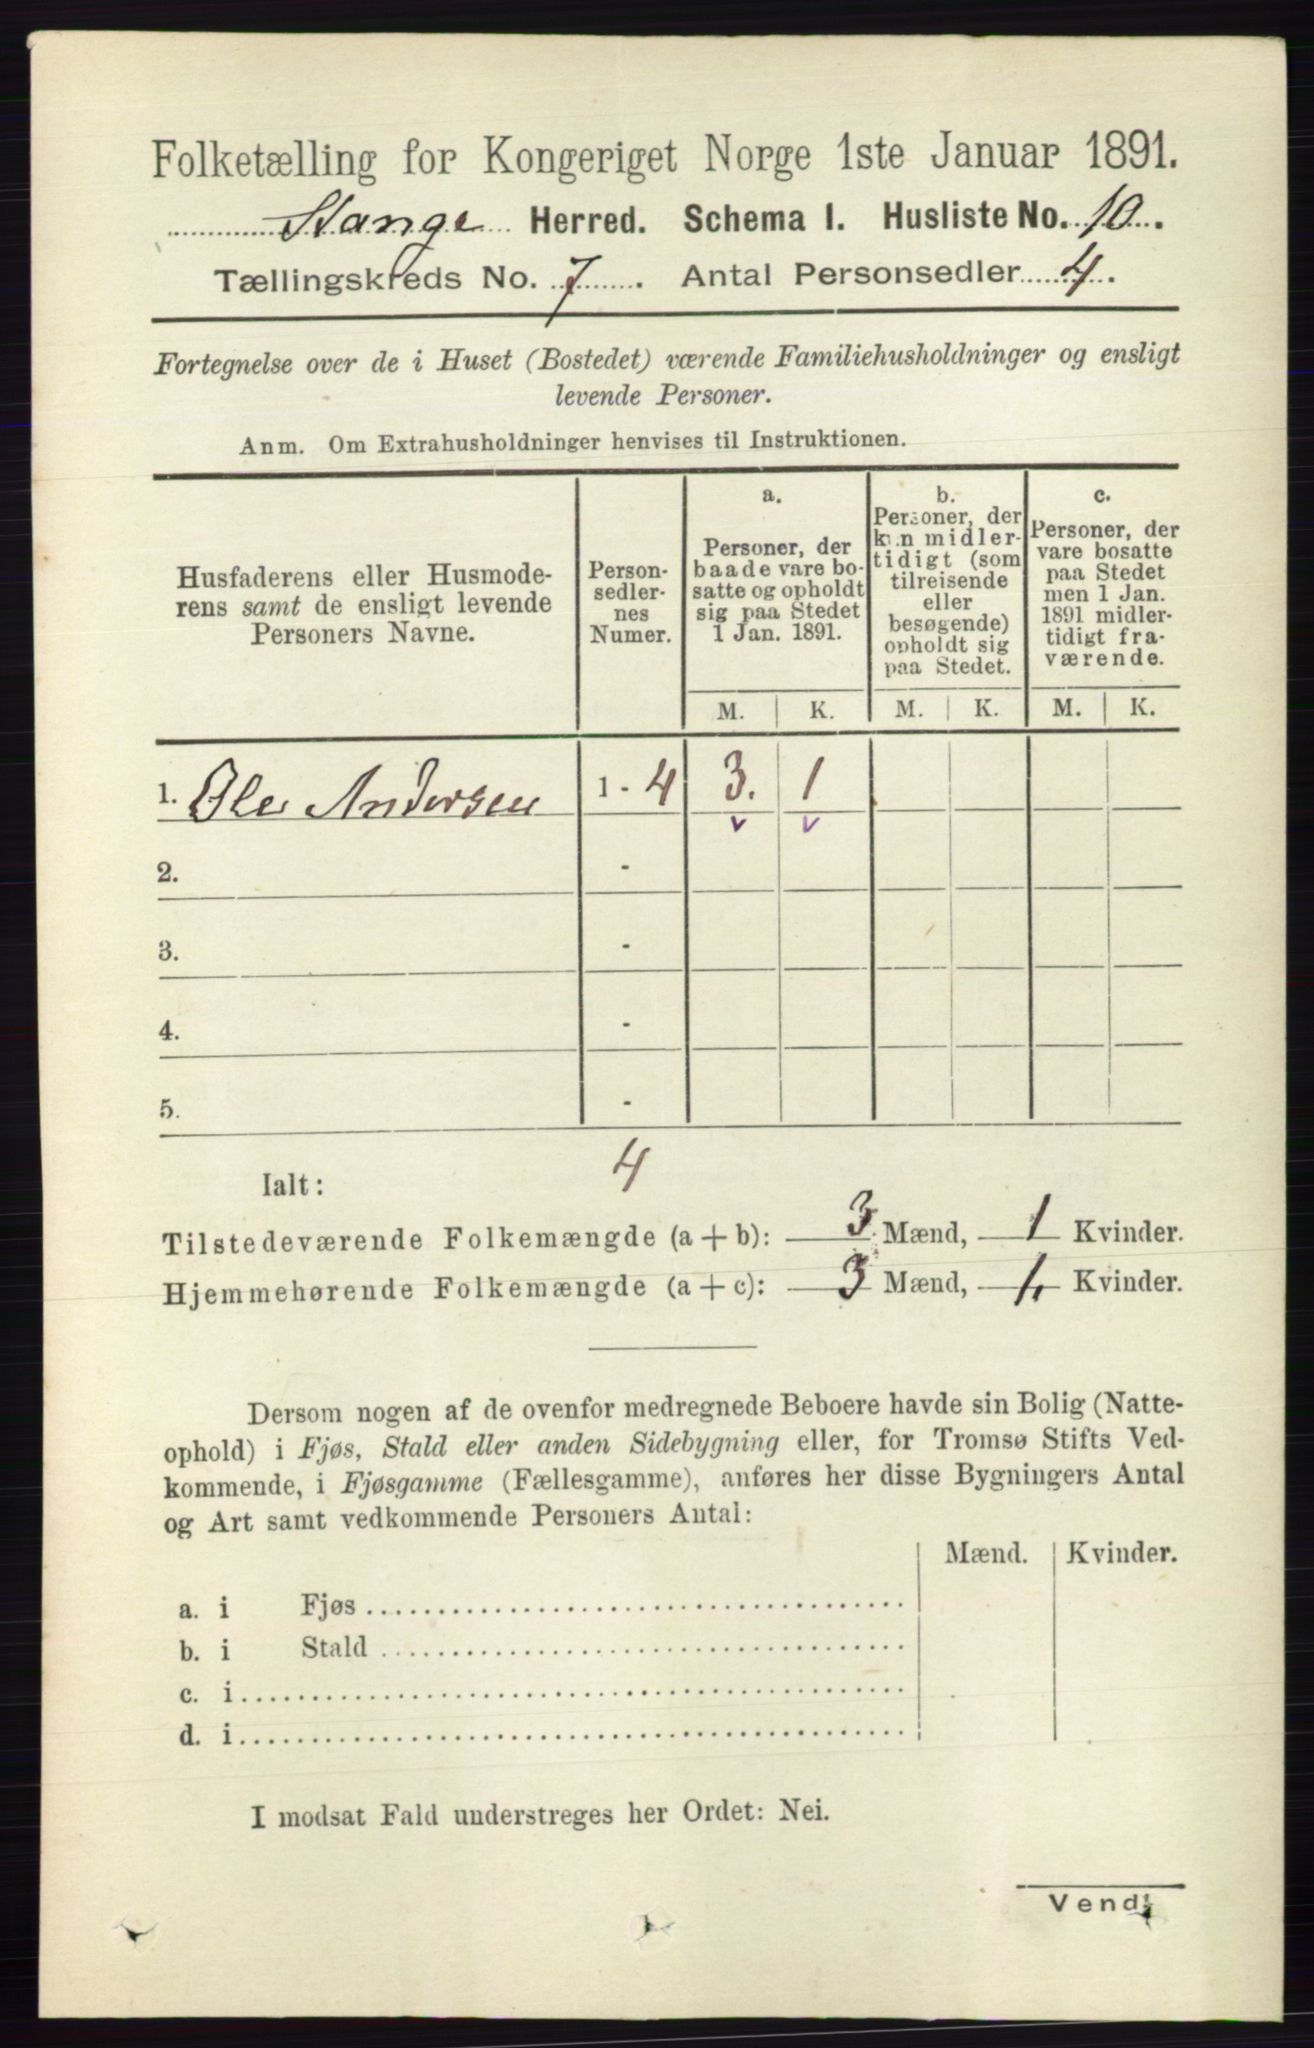 Folketælling for Kongeriget Norge 1ste Januar 1891.
Stange Herred. Schema I. Husliste No. 10.
Tællingskreds No. 7. Antal Personsedler 4.
Fortegnelse over de i Huset (Bostedet) værende Familiehusholdninger og ensligt
levende Personer.
Anm. Om Extrahusholdninger henvises til Instruktionen.
Husfaderens eller Husmode-
rens samt de ensligt levende
Personers Navne.
Person-
sedler-
nes
Numer.
a.
Personer, der
baade vare bo-
satte og opholdt
sig paa Stedet
1 Jan. 1891.
b.
Personer, der
kun midler-
tidigt (som
tilreisende
eller
besøgende)
opholdt sig
paa Stedet.
c.
Personer, der
vare bosatte
paa Stedet
men 1 Jan.
1891 midler-
tidigt fra-
værende.
M. K. M. K. M. K.
1. Ole Andersen 1 - 4 3. 1
v v
2. -
3. -
4. -
5. -
Ialt: 4
Tilstedeværende Folkemængde (a + b): 3 Mænd, 1 Kvinder.
Hjemmehørende Folkemængde (a + c): 3 Mænd, 1 Kvinder.
Dersom nogen af de ovenfor medregnede Beboere havde sin Bolig (Natte-
ophold) i Fjøs, Stald eller anden Sidebygning eller, for Tromsø Stifts Ved-
kommende, i Fjøsgamme (Fællesgamme), anføres her disse Bygningers Antal
og Art samt vedkommende Personers Antal:
Mænd. Kvinder.
a. i Fjøs
b. i Stald
c. i
d. i
I modsat Fald understreges her Ordet: Nei.
Vend!